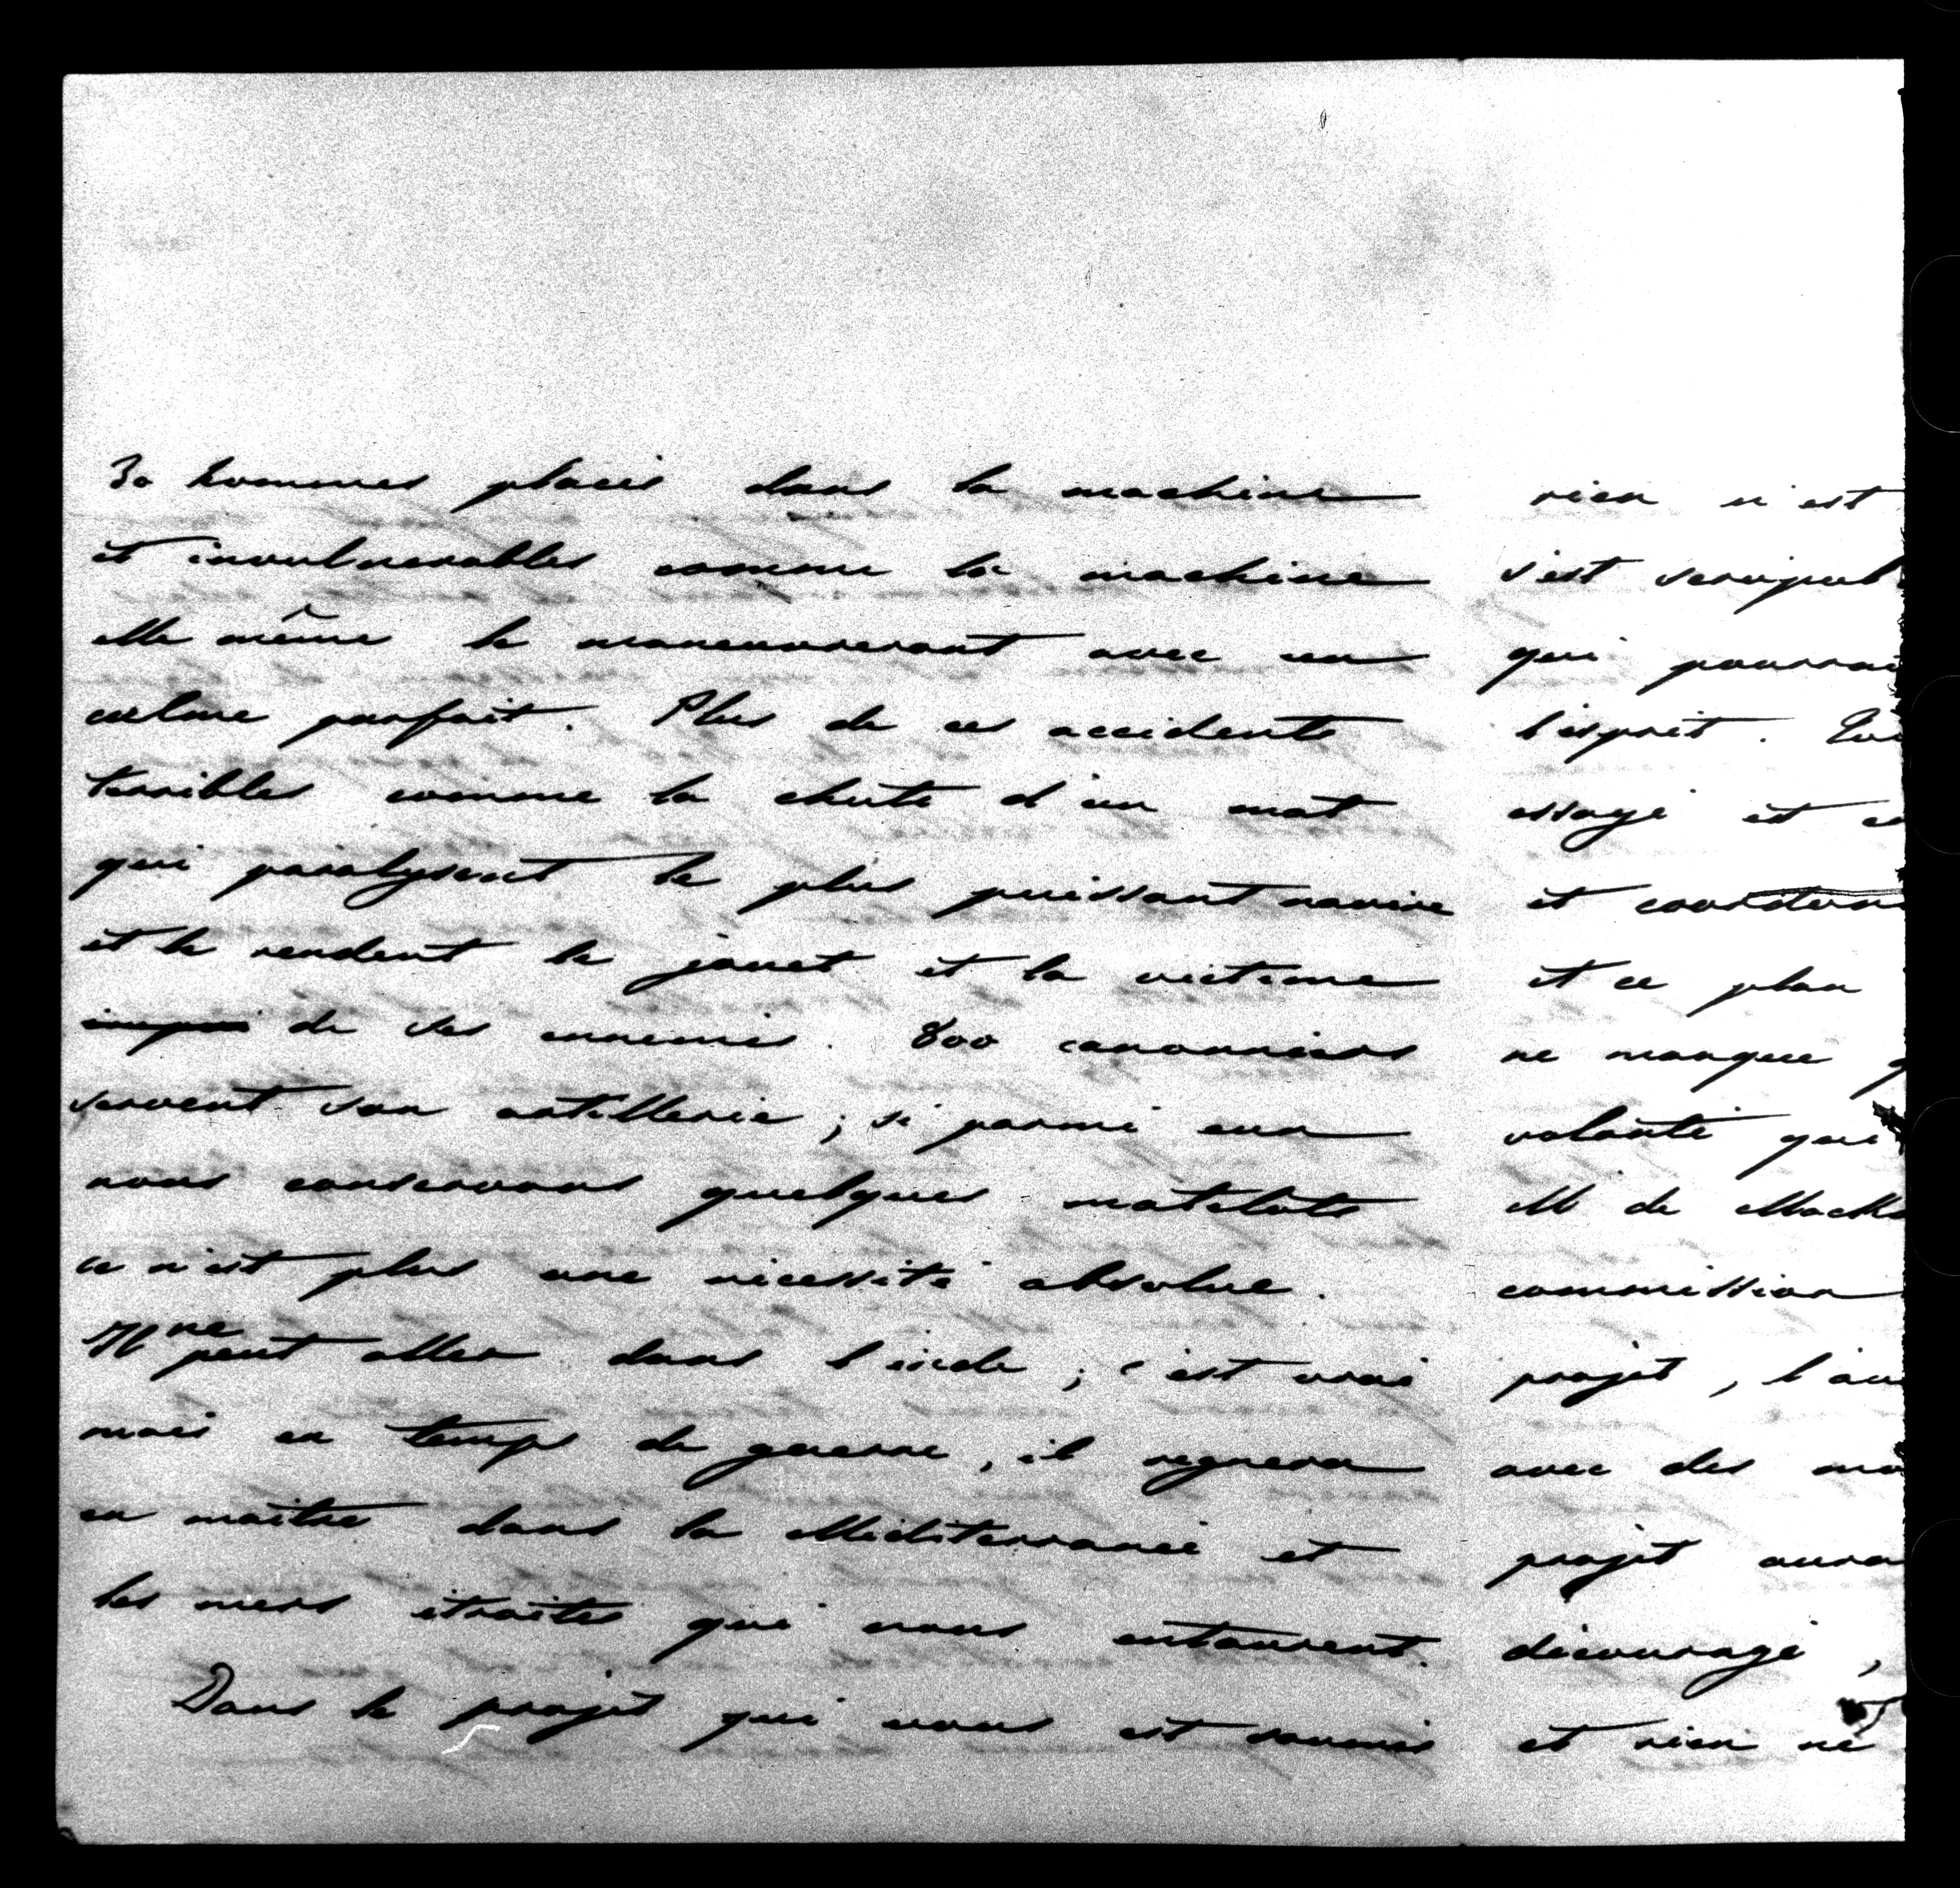 30 hommes placés dans la machine
et invulnerables comme la machine
elle même le manœuvreront avec un
calme parfait. Plus de ces accidents
terribles comme la chute d'un mat
qui paralysent le plus puissant navire
et le rendent le jouet et la victime
de ses ennemis. 800 canonniers
servent son artillerie ; si parmi eux
nous conservons quelques matelots
ce n'est plus une nécessité absolue.
Il ne peut aller dans l'inde ; c'est vrai
mais en temps de guerre, il regnera
en maître dans la Méditerranée et
les mers étroites qui nous entourent.
Dans le projet qui vous est soumis
rien n'est
s'est scrupul
qui pourrai
l'esprit.
essayé et
et
et ce plan
ne manque
volonté qui
M de Mack
commission
projet, l'au
avec des
projet aura
découragé,
et rien ne